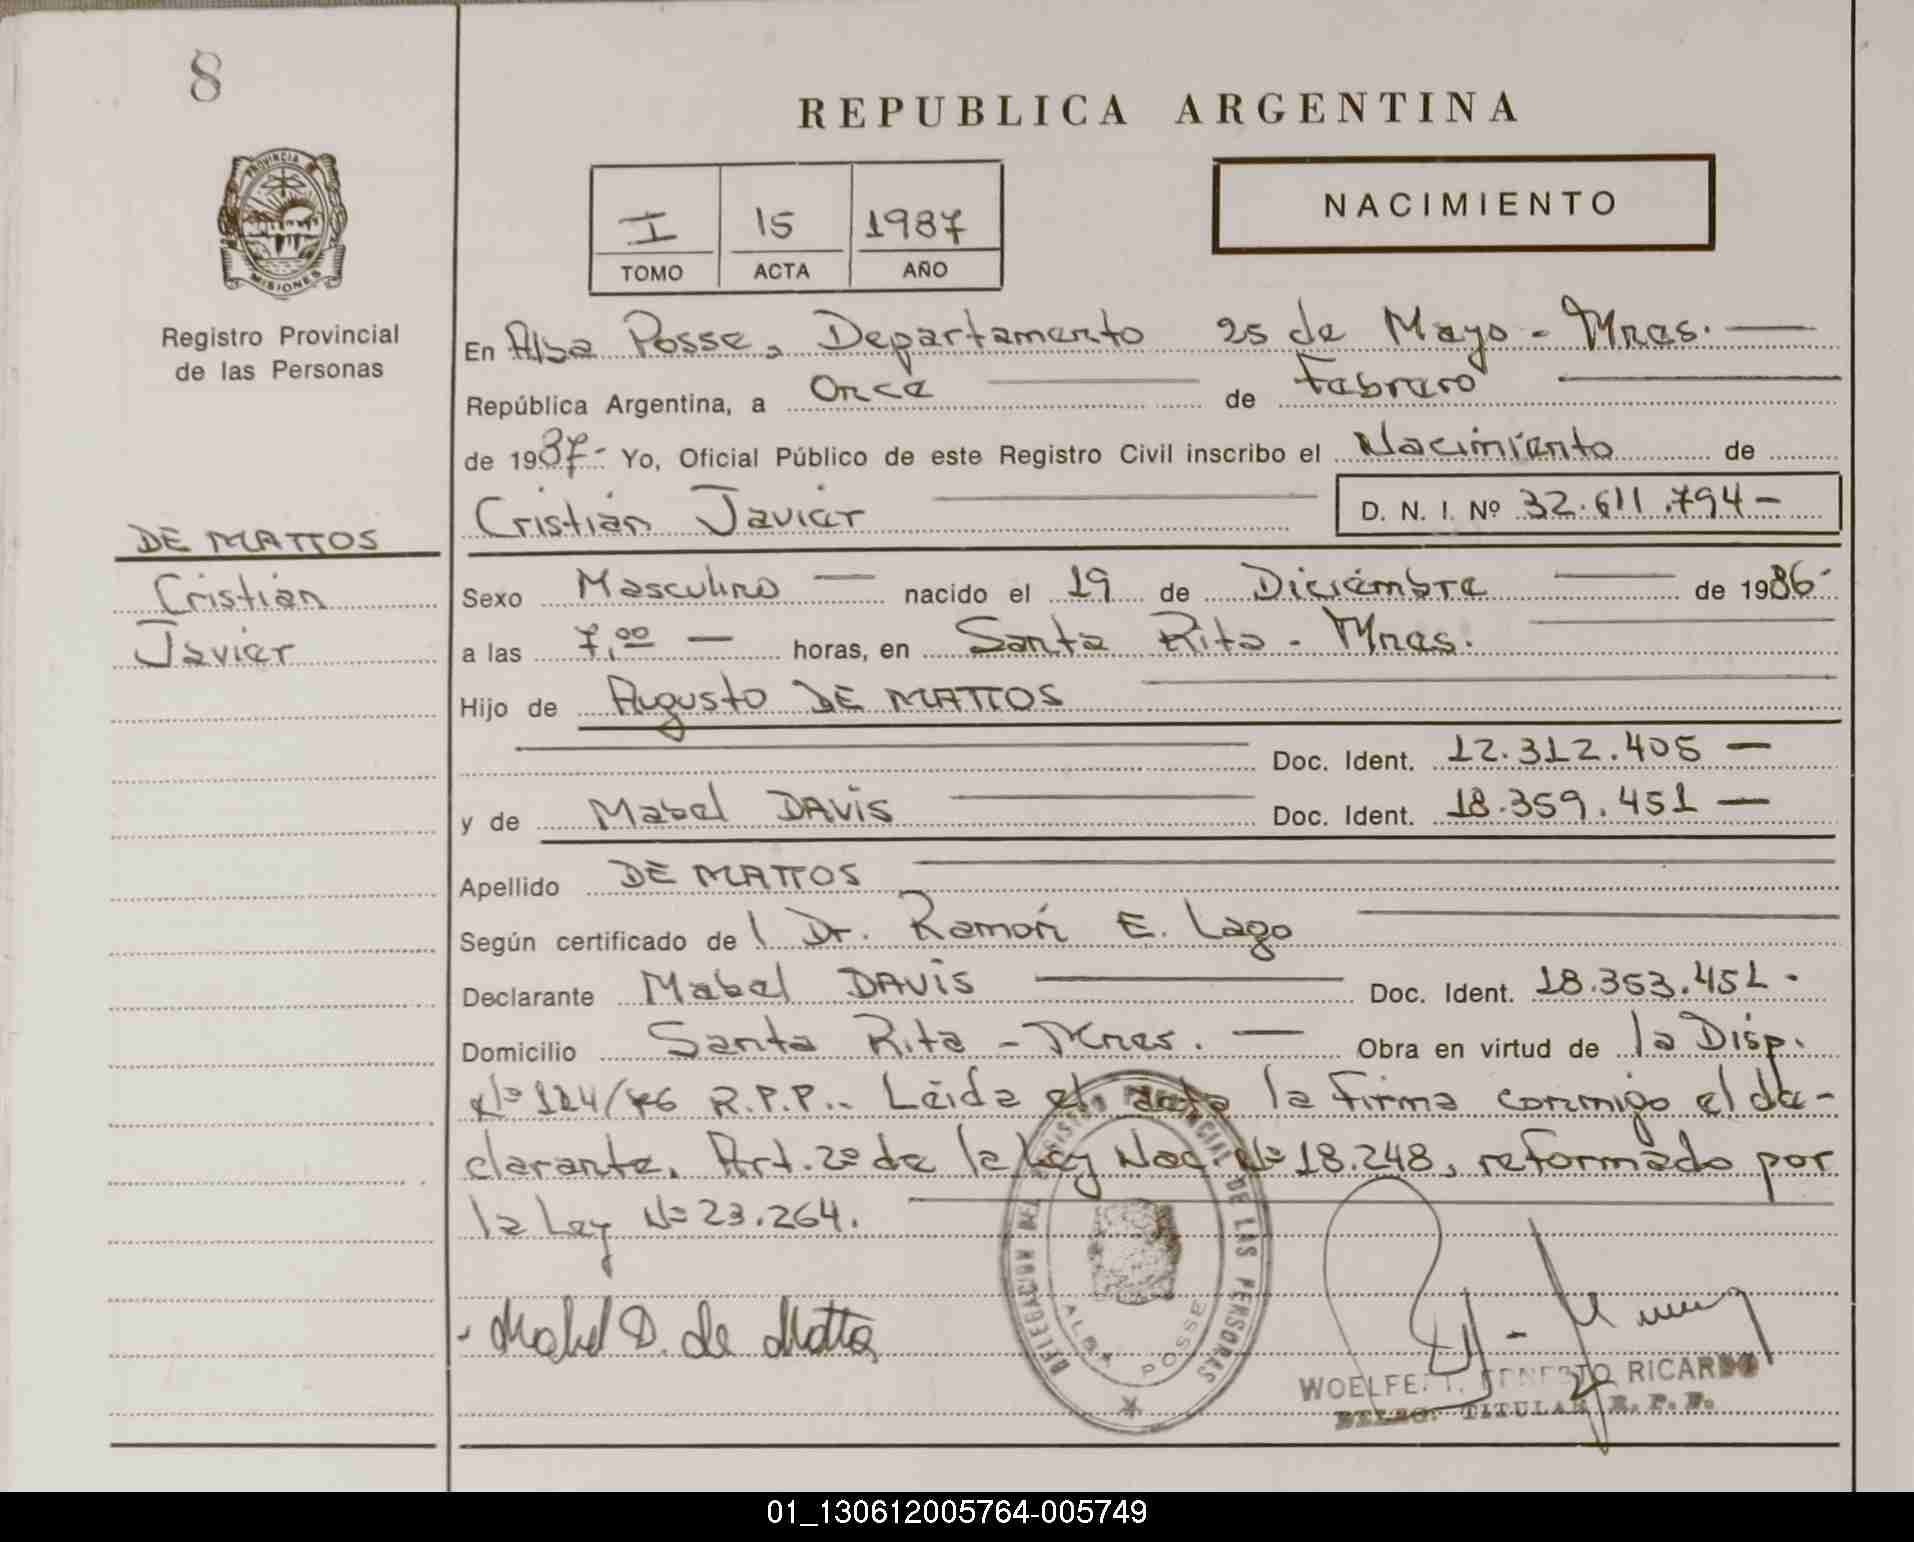 8
REPUBLICA ARGENTINA
PROVINCIA
MISIONES
Registro Provincial
de las Personas
I 15 1987
TOMO ACTA AÑO
NACIMIENTO
En Alba Posse, Departamento 25 de Mayo - Mnes.
República Argentina, a Once de Febrero
de 1987- Yo, Oficial Público de este Registro Civil inscribo el Nacimiento de
Cristián Javier D. N. I. Nº 32.611.794-
DE MATTOS
Cristián
Javier
Sexo Masculino nacido el 19 de Diciembre de 1986-
a las 7,00 horas, en Santa Rita - Mnes.
Hijo de Augusto DE MATTOS
Doc. Ident. 12.312.405
y de Mabel DAVIS Doc. Ident. 18.359.451
Apellido DE MATTOS
Según certificado de l Dr. Ramón E. Lago
Declarante Mabel DAVIS Doc. Ident. 18.353.451-
Domicilio Santa Rita - Mnes. Obra en virtud de la Disp.
Nº 124/76 R.P.P.- Leida el acta la firma conmigo el de-
clarante. Art. 2º de la Ley Nac. Nº 18.248, reformado por
la Ley Nº 23.264.
Mabel D. de Mattos
DELEGACION DEL REGISTRO PROVINCIAL DE LAS PERSONAS
ALBA POSSE
ERNESTO RICARDO
DELEG. TITULAR R. P. P.
01_130612005764-005749